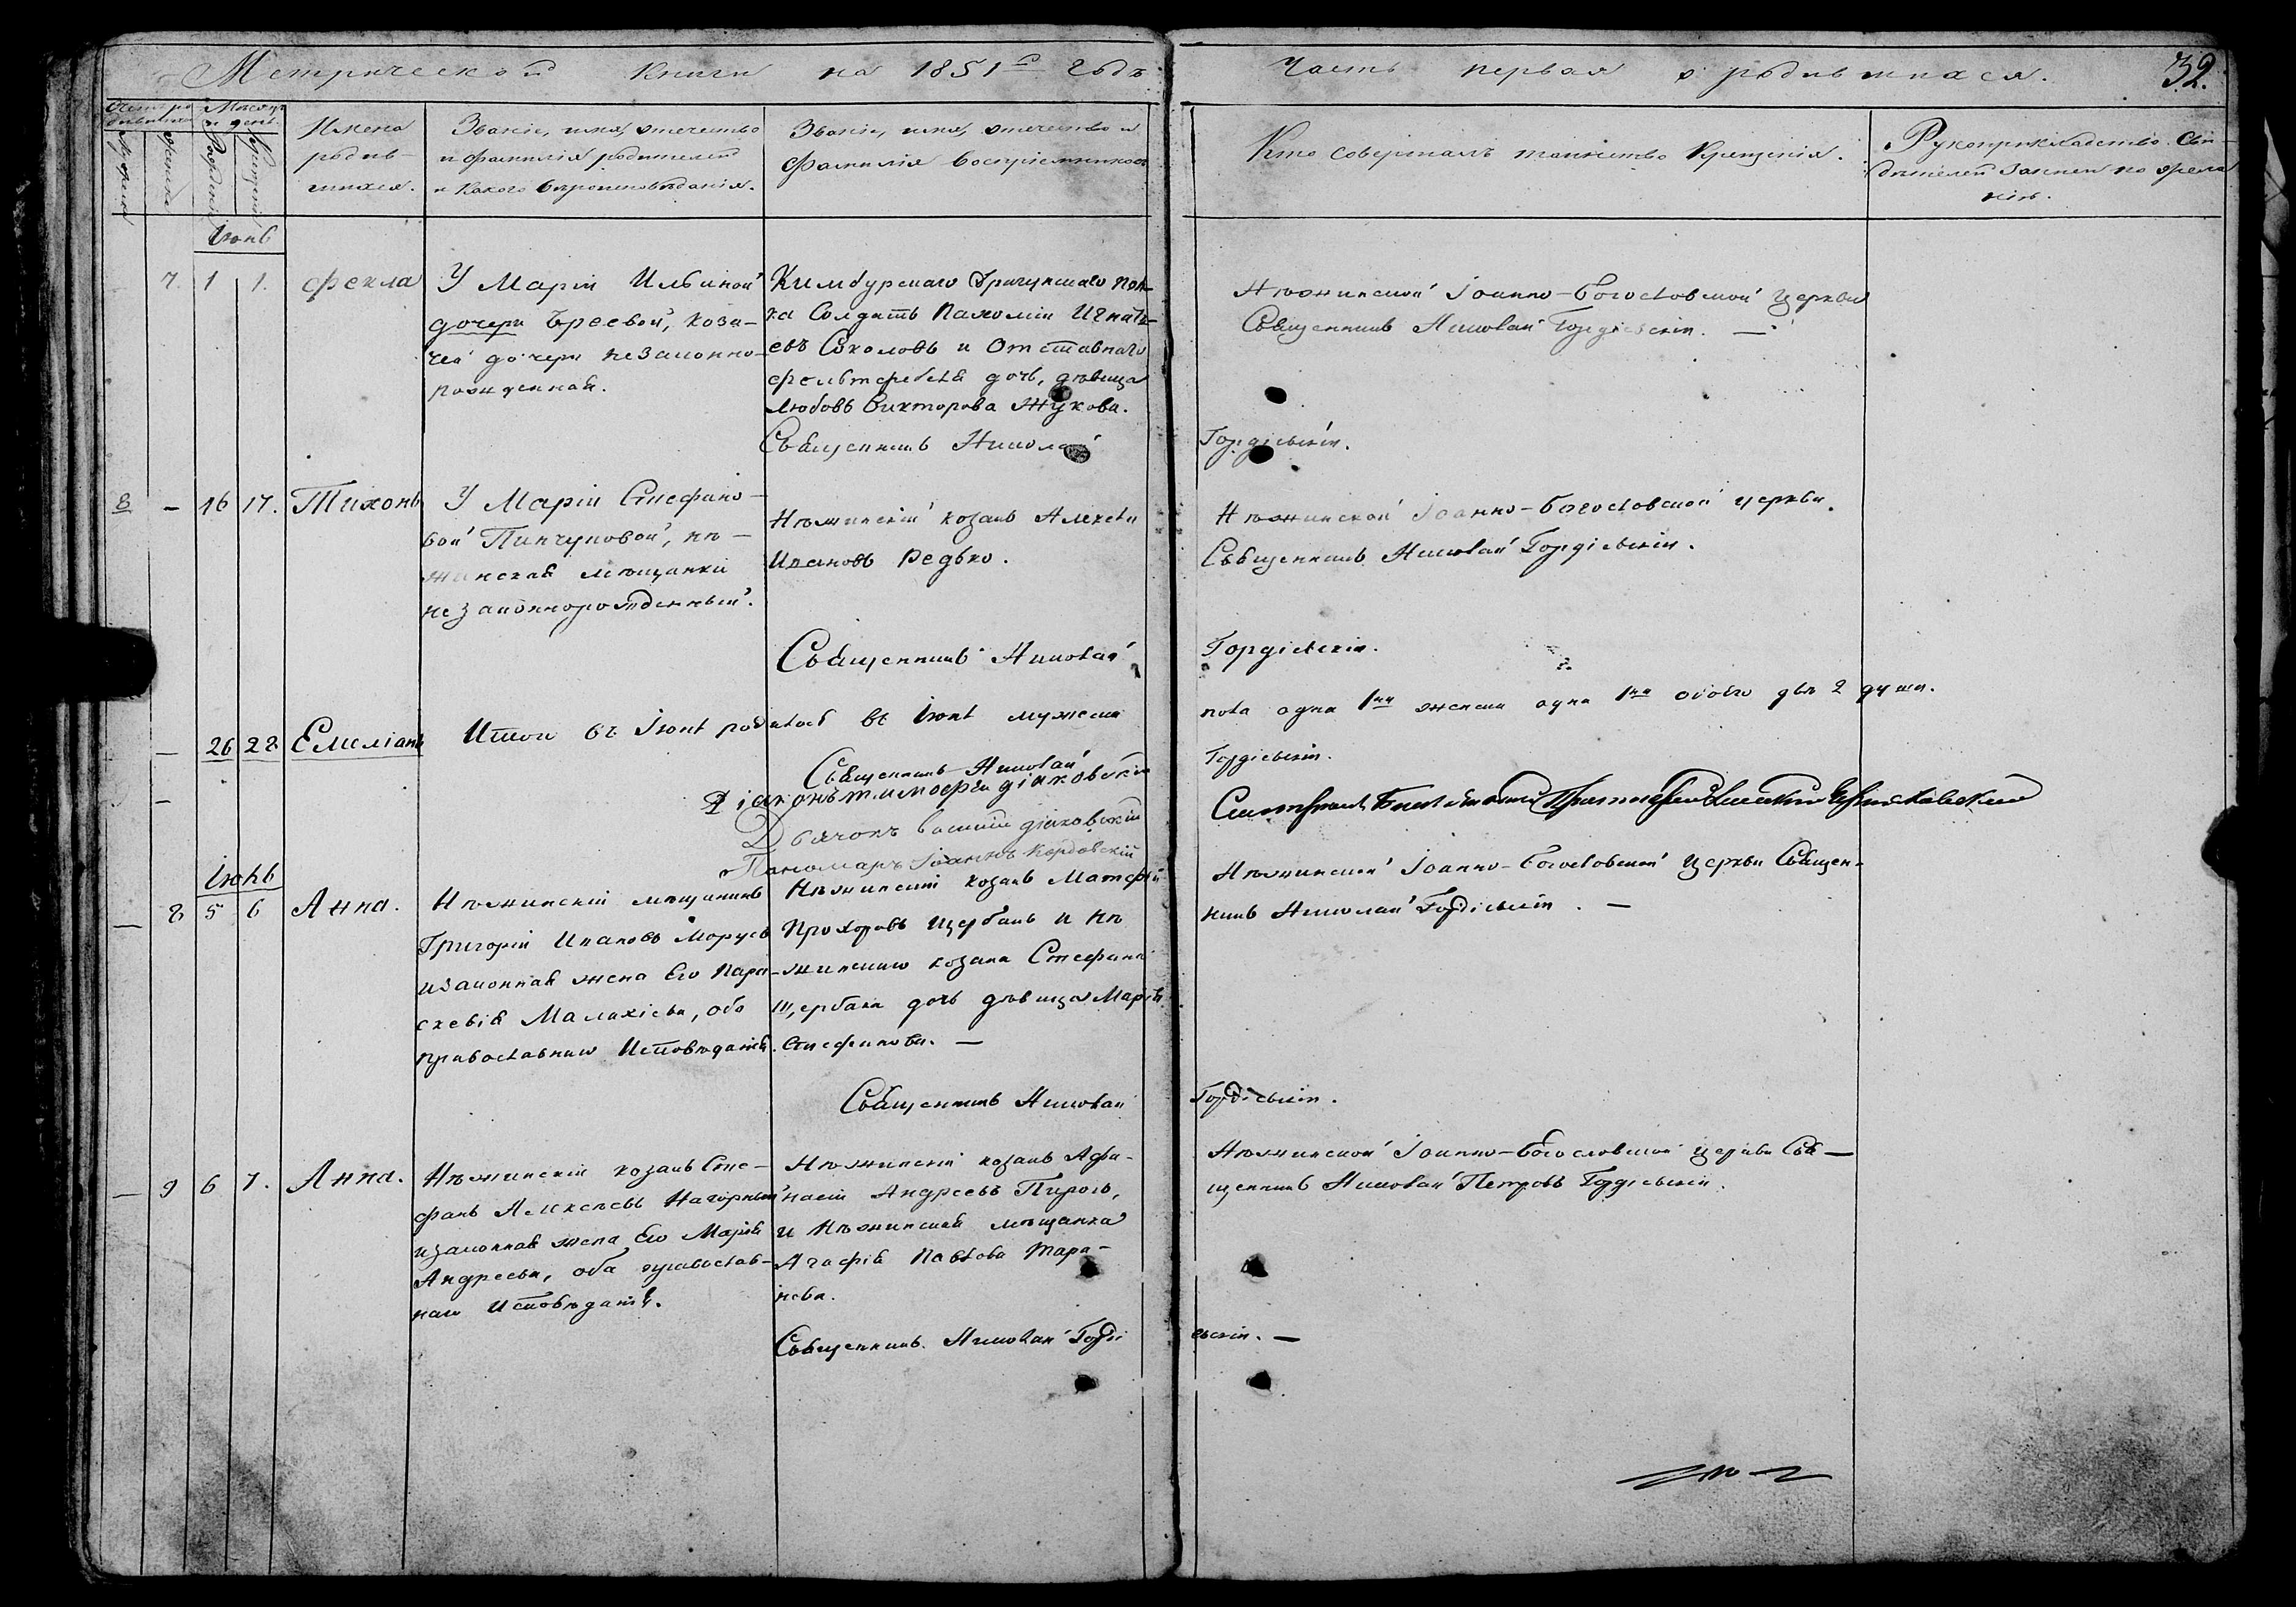 Метрической книги на 1851й годъ
Часть первая о родившихся.
32.
Мѣсяцъ и день.
Рожденія
Крещенія
Имена
родив-
шихся.
Званіе, имя, отечество
и фамилія родителей
и какого вѣроисповѣданія.
Званіе, имя, отечество и
фамилія воспріемниковъ
Кто совершалъ таинство крещенія.
Рукоприкладство сви-
дѣтелей записи по жела
нію.
Іюнь
7. 1 1. Фекла
У Маріи Ильиной
дочери козо-
чей дочери незаконно-
рожденная.
Кимбурнскаго Драгунскаго пол-
ка Солдатъ Пахомій Игнать-
евъ Соколовъ и Отставнаго
дочь, дѣвица
Любовь Викторова Жукова.
Священникъ Николай
Нѣжинской Іоанно-Богословской Церкви
Священникъ Николай Гордіевскій. —
Гордіевскій.
8 – 16 17. Тихонъ
У Маріи Стефано-
вой Пинчуковой, нѣ-
жинской мѣщанки
незаконнорожденный.
Нѣжинскій козакъ Алексѣй
Ивановъ Редько.
Священникъ Николай
Нѣжинской Іоанно-Богословской церкви.
Священникъ Николай Гордіевскій.
Гордіевскій.
— 26 28 Емиліанъ
Итого въ Іюнѣ родилось въ Іюнѣ мужеска
пола одна 1на женска одна 1на обоего двѣ 2 души.
Священникъ Николай
Гордіевскій.
Діаконъ Тимофей Діаковскій
Дьячокъ Василій Діаковскій
Пономарь Іоаннъ
Іюль
— 8 5 6 Анна.
Нѣжинскій мѣщанинъ
Григорій Ивановъ
и законная жена Его Пара-
скевія Малахіева, оба
православнаго Исповѣданія.
Нѣжинскій козакъ Матфей
Прохоровъ Щербакъ и нѣ
жинскаго козака Стефана
Щербака дочь дѣвица Марія
Стефанова. —
Священникъ Николай
Нѣжинской Іоанно-Богословской Церкви Священ-
никъ Николай Гордіевскій. —
Гордіевскій.
— 9 6 7. Анна.
Нѣжинскій козакъ Сте-
фанъ Алексѣевъ Нагорный
и законная жена Его Марія
Андреева, оба православ-
наго Исповѣданія.
Нѣжинскій козакъ Афа-
насій Андреевъ Пирогъ,
и Нѣжинская мѣщанка
Агафія Павлова Тара-
нова.
Священникъ Николай Горді
Нѣжинской Іоанно-Богословской церкви Свя—
щенникъ Николай Петровъ Гордіевскій.
евскій. —